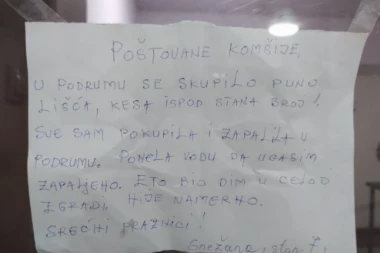 POŠTOVANE KOMŠIJE,
U PODRUMU SE SKUPILO PUNO
LIŠĆA, KESA ISPOD STANA BROJ !
SVE SAM POKUPILA I ZAPALILA U
PODRUMU. PONELA VODU DA UGASIM
ZAPALJENO. ETO BIO DIM U CELOJ
ZGRADI NIJE NAMERNO.
SREĆNI PRAZNICI!
Snežana, stan